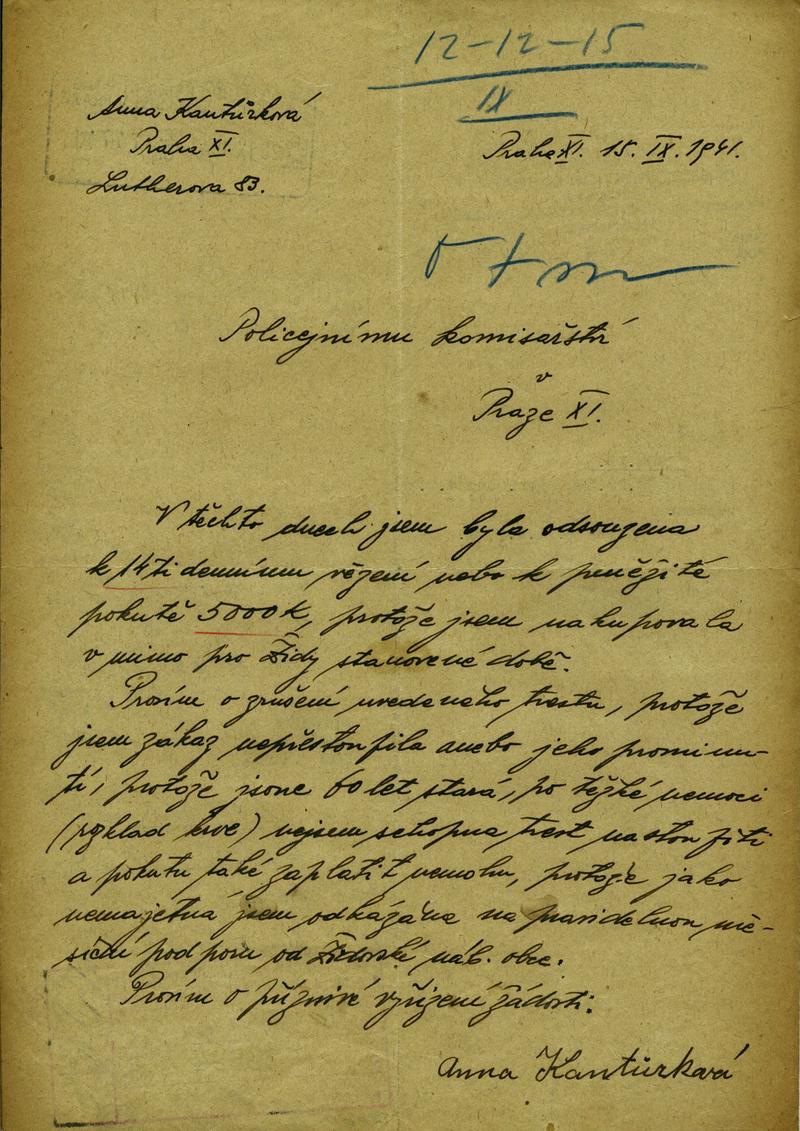 12-12-15
IX
Anna Kantůrková
Praha XI.
Lutherova 83.
Praha XI. 15. IX. 1941.
Policejnímu komisařství
v
Praze XI.
V těchto dnech jsem byla odsouzena
k 14ti dennímu vězení nebo k peněžité
pokutě 5000K, protože jsem nakupovala
v mimo pro Židy stanovené době.
Prosím o zrušení uvedeného trestu, protože
jsem zákaz nepřestoupila anebo jeho prominu-
tí, protože jsouc 60 let stará, po těžké nemoci
(rozklad krve) nejsem schopna trest nastoupiti
a pokutu také zaplatit nemohu, protože jako
nemajetná jsem odkázána na pravidelnou mě-
síční podporu od Židovské náb. obce.
Prosím o příznivé vyřízení žádosti.
Anna Kantůrková